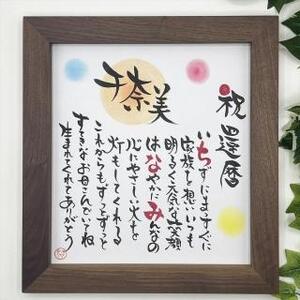 祝還暦
千奈美
いちずにまっすぐに
家族を想いいつも
明るく元気な笑顔
はなやかにみんなの
心にやさしい火を
灯もしてくれる
これからもずっとずっと
すてきなお母さんでいてね
生まれてくれてありがとう